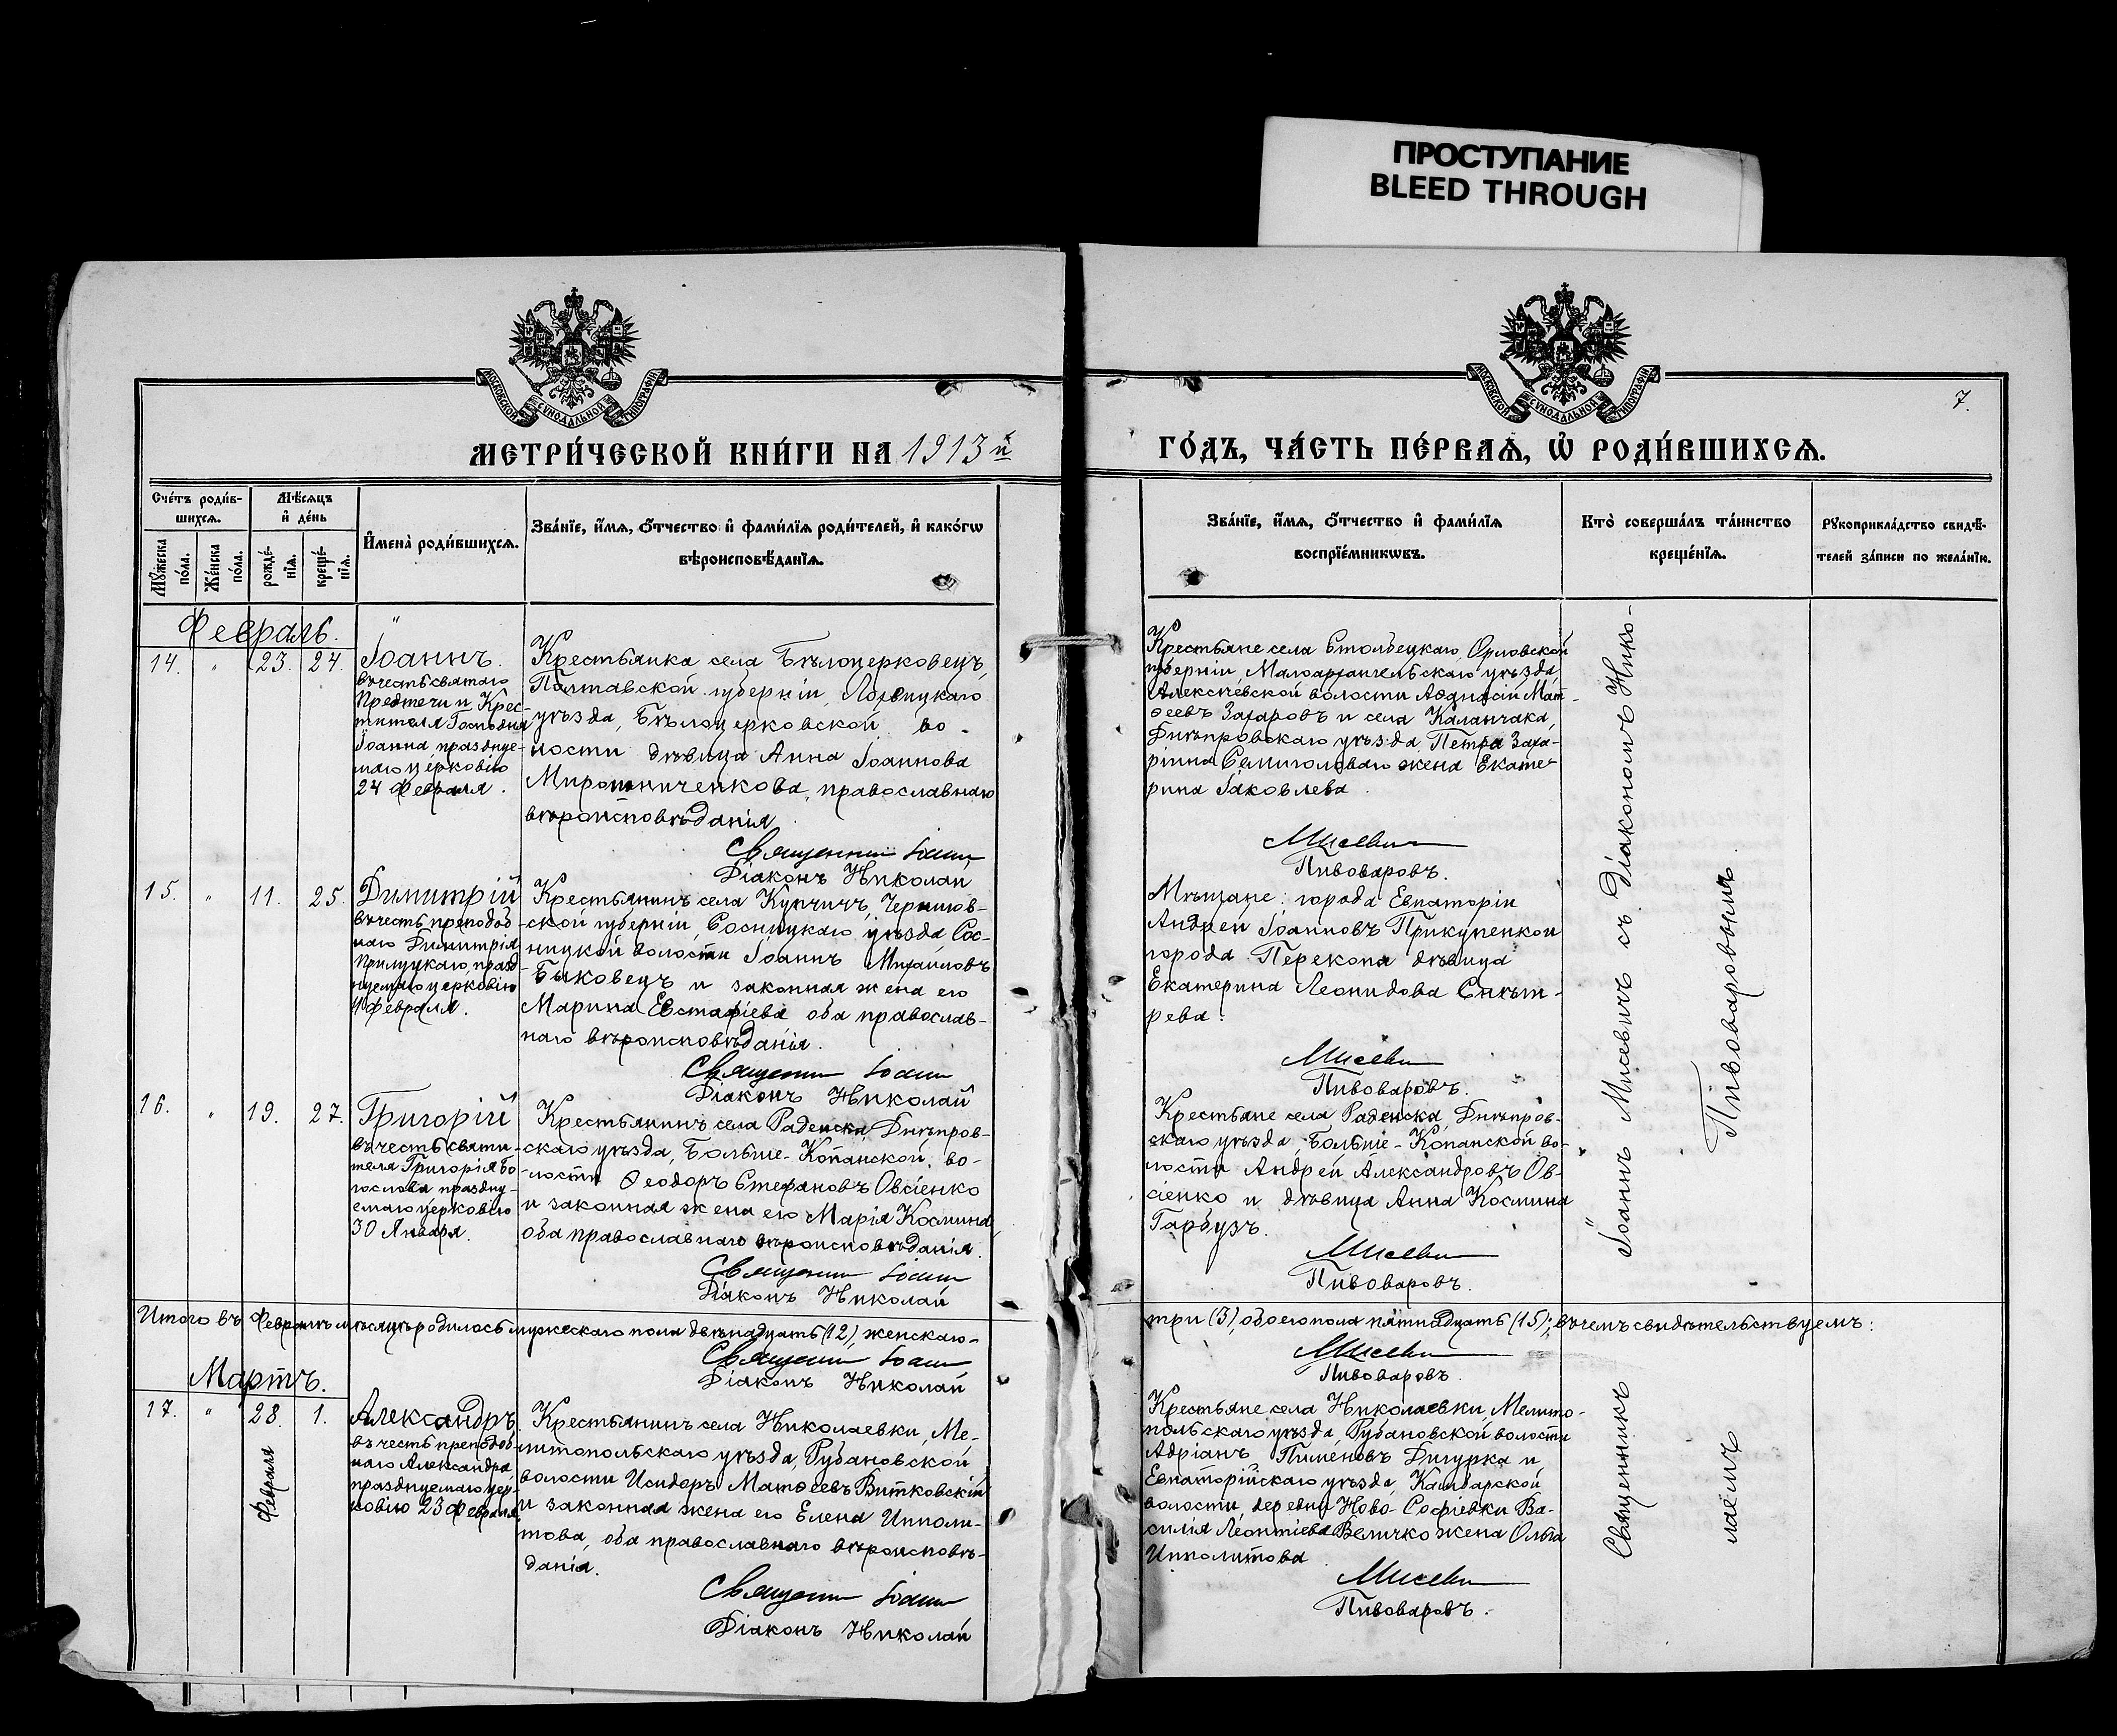 ПРОСТУПАНИЕ
BLEED THROUGH
МОСКОВСКОЙ СѴНОДАЛЬНОЙ ТИПОГРАФІИ
МОСКОВСКОЙ СѴНОДАЛЬНОЙ ТИПОГРАФІИ
7.
МЕТРИ́ЧЕСКОЙ КНИ́ГИ НА 1913й
ГО́ДЪ, ЧА́СТЬ ПЕ́РВАѦ, Ѡ҆ РОДИ́ВШИХСѦ.
Сче́тъ роди́в-
шихсѧ.
Мꙋ́жеска по́ла.
Же́нска по́ла.
Мѣ́сѧцъ
и҆ де́нь
рожде́-
нїѧ.
креще́-
нїѧ.
И҆мена̀ роди́вшихсѧ.
Зва́нїе, и҆́мѧ, ѻ҆́тчество и҆ фами́лїѧ роди́телей, и҆ како́гѡ
вѣроисповѣ́данїѧ.
Зва́нїе, и҆́мѧ, ѻ҆́тчество и҆ фами́лїѧ
воспрїе́мникѡвъ.
Кто̀ соверша́лъ та́инство
креще́нїѧ.
Рꙋкоприкла́дство свидѣ́-
телей за́писи по жела́нїю.
Февраль.
14. " 23. 24.
Іоаннъ.
въ честь святаго
Предтечи и Крес-
тителя Господня
Іоанна, праздуе-
маго церковію
24 Февраля.
Крестьянка села Бѣлоцерковецъ,
Полтавской губерніи, Лохвицкаго
уѣзда, Бѣлоцерковской во-
лости дѣвица Анна Іоаннова
Мирошниченкова, православнаго
вѣроисповѣданія.
Священникъ Іоаннъ
Діаконъ Николай
Крестьяне села Столбецкаго, Орловской
губерніи, Малоархангельскаго уѣзда,
Алексѣевской волости Мат-
ѳеевъ Захаровъ и села Каланчака,
Днѣпровскаго уѣзда, Петра Заха-
ріина Семиголоваго жена Екате-
рина Іаковлева.
Мисевичъ
Пивоваровъ.
15. " 11. 25.
Димитрій
въ честь преподоб-
наго Димитрія
Прилуцкаго, празд-
нуемаго церковію
11 Февраля.
Крестьянинъ села Купчичъ, Чернигов-
ской губерніи, Сосницкаго уѣзда, Сос-
ницкой волости Іоаннъ Михаиловъ
Быковецъ и законная жена его
Марина Евстафіева оба православ-
наго вѣроисповѣданія.
Священникъ Іоаннъ
Діаконъ Николай
Мѣщане: города Евпаторіи
Андрей Іоанновъ Прикупенко и
города Перекопа дѣвица
Екатерина Леонидова
рева.
Мисевичъ
Пивоваровъ.
16. " 19. 27.
Григорій
въ честь святи-
теля Григорія Бо-
гослова праздну-
емаго церковію
30 Января.
Крестьянинъ села Раденска, Днѣпров-
скаго уѣзда, Больше-Копанской во-
лости Ѳеодоръ Стефановъ Овсіенко
и законная жена его Марія Космина
оба православнаго вѣроисповѣданія.
Священникъ Іоаннъ
Діаконъ Николай
Крестьяне села Раденска, Днѣпров-
скаго уѣзда, Больше-Копанской во-
лости Андрей Александровъ Ов-
сіенко и дѣвица Анна Космина
Гарбузъ.
Мисевичъ
Пивоваровъ.
Итого въ Февралѣ мѣсяцѣ родилось мужескаго пола двѣнадцать (12), женскаго-
три (3), обоего пола пятнадцать (15); въ чемъ свидѣтельствуемъ:
Священникъ Іоаннъ
Діаконъ Николай
Мисевичъ
Пивоваровъ.
Мартъ.
17. " 28. 1.
Февраля
Александръ
въ честь преподоб-
наго Александра,
празднуемаго цер-
ковію 23 Февраля.
Крестьянинъ села Николаевки, Ме-
литопольскаго уѣзда, Рубановской
волости Исидоръ Матѳеевъ Витковскій
и законная жена его Елена Ипполи-
това, оба православнаго вѣроисповѣ-
данія.
Священникъ Іоаннъ
Діаконъ Николай
Крестьяне села Николаевки, Мелито-
польскаго уѣзда, Рубановской волости
Адріанъ Пименовъ Дигурка и
Евпаторійскаго уѣзда, Камбарской
волости, деревни Ново-Софіевки Ва-
силія Леонтіева Величко жена Ольга
Ипполитова.
Мисевичъ
Пивоваровъ.
Священникъ Іоаннъ Мисевичъ съ Діакономъ Нико-
лаемъ Пивоваровымъ.